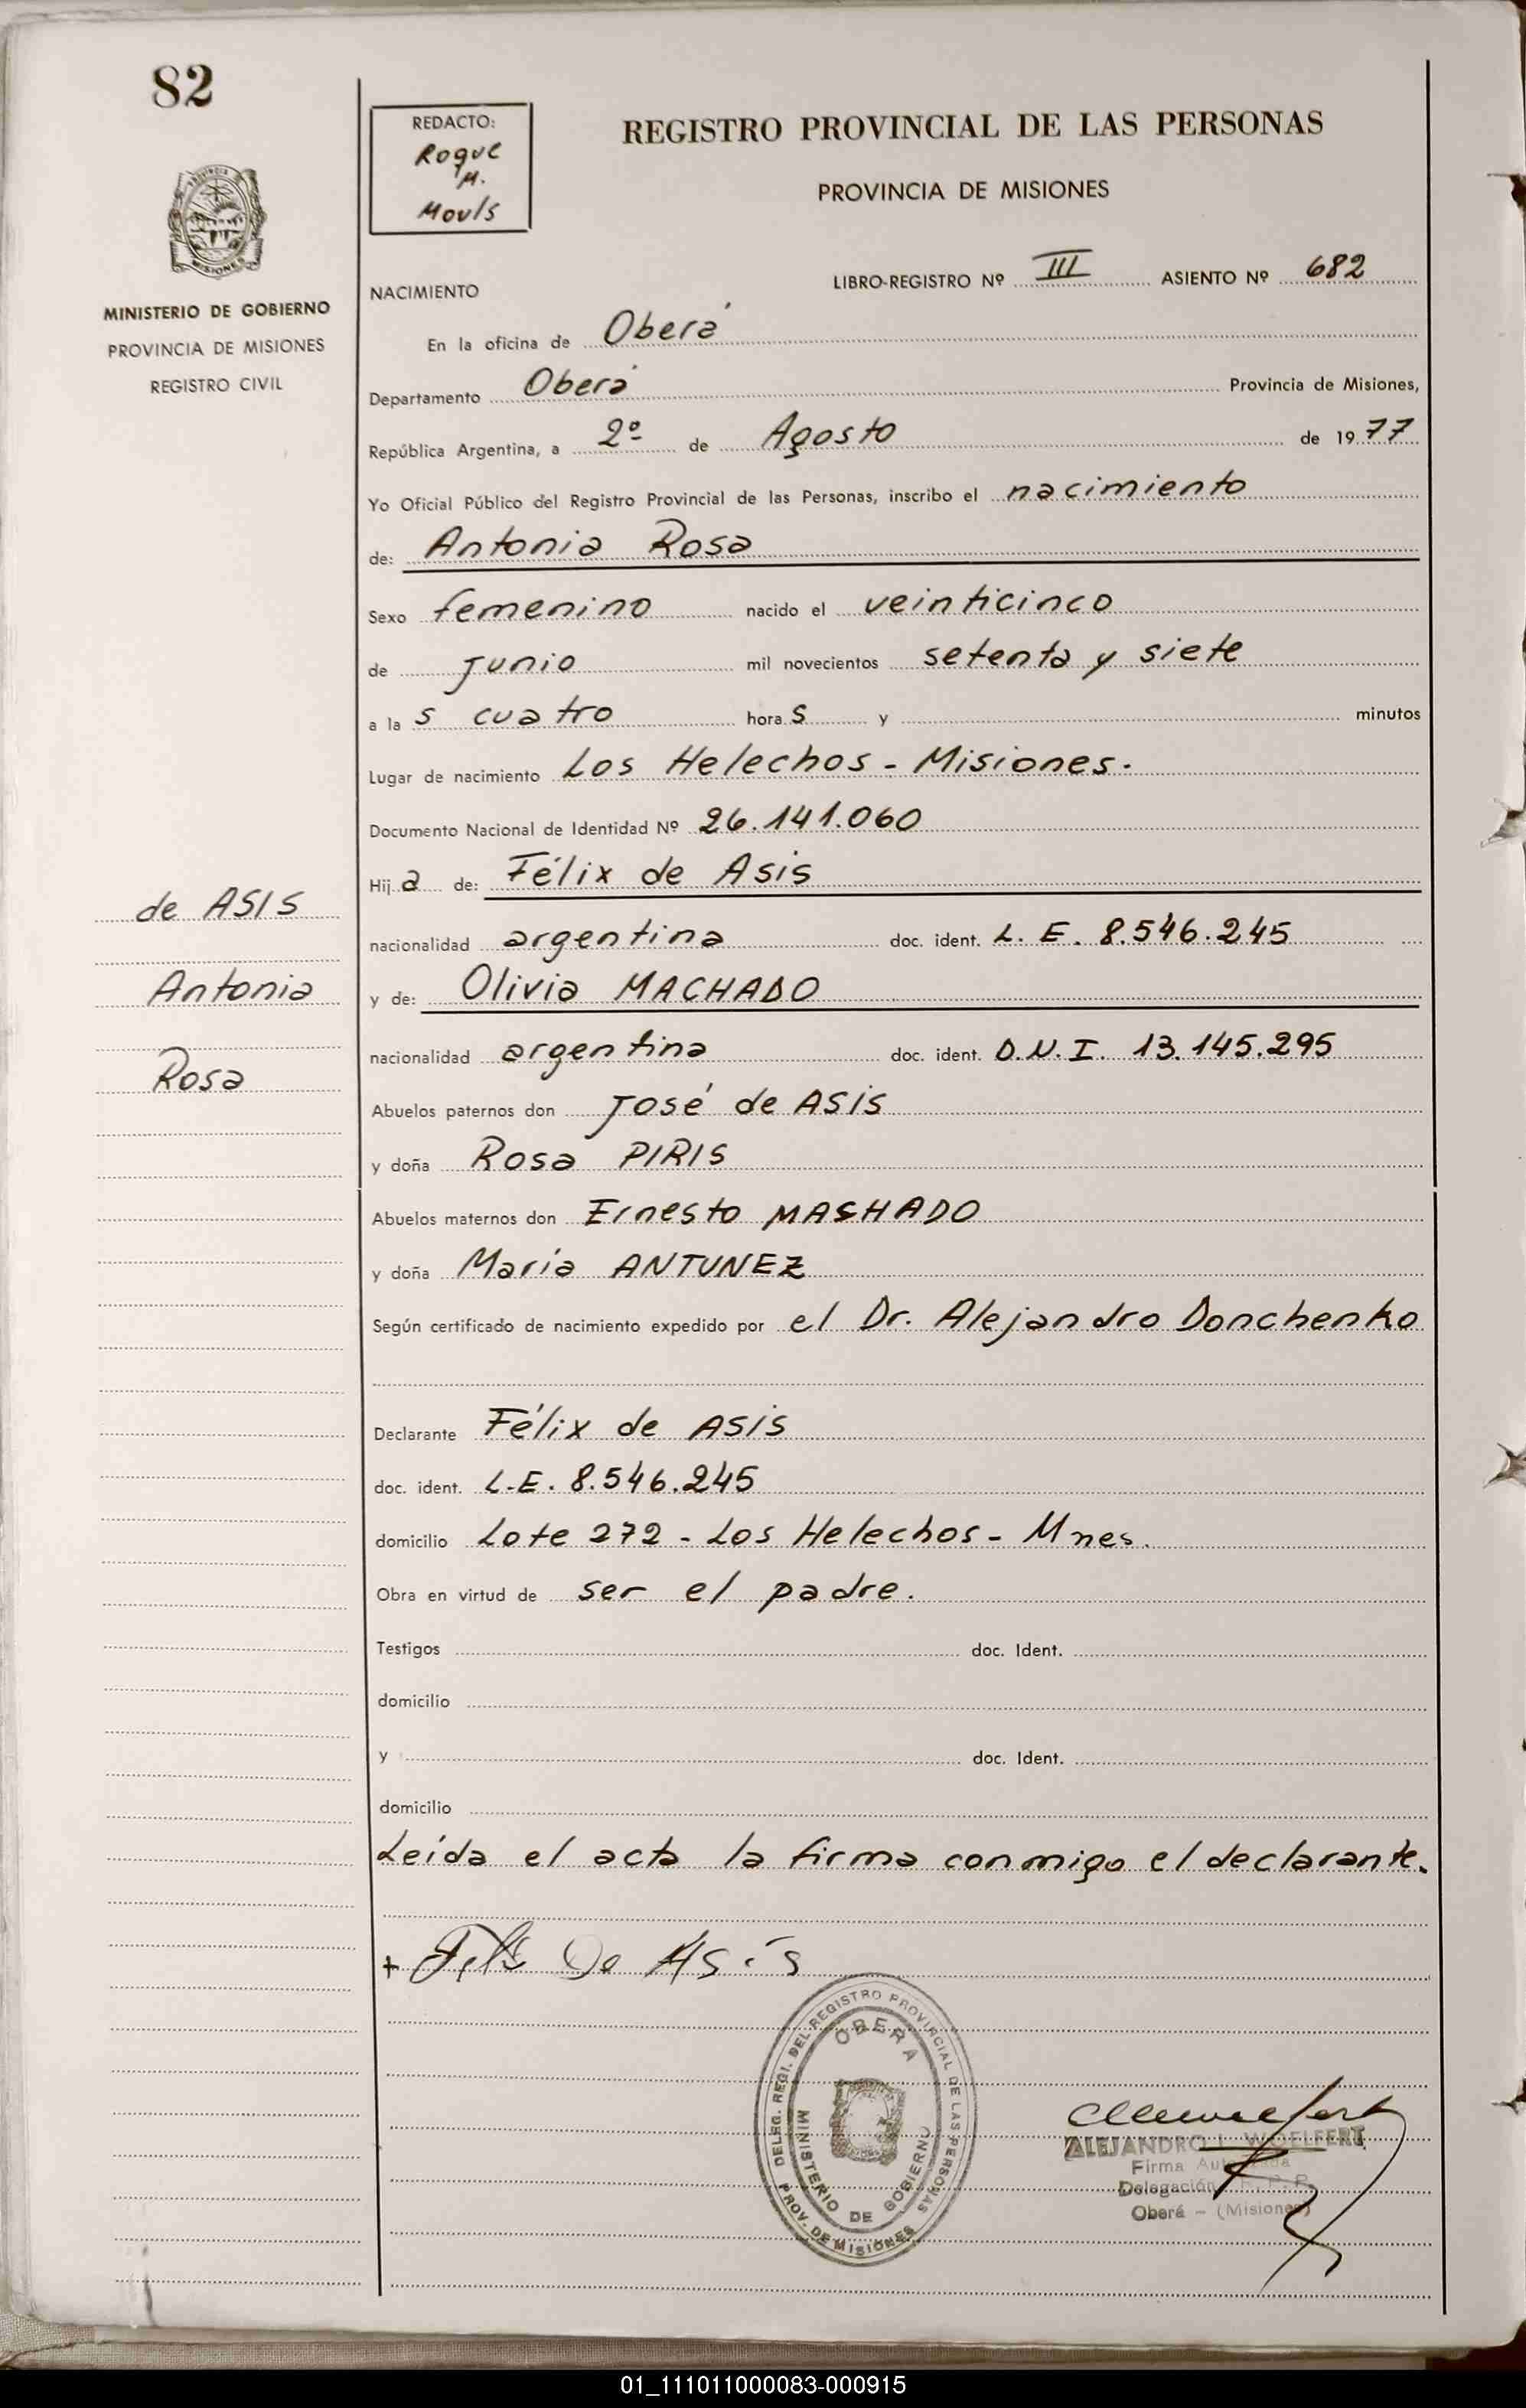 82
REDACTO:
Roque
M.
Mouls
REGISTRO PROVINCIAL DE LAS PERSONAS
PROVINCIA DE MISIONES
PROVINCIA DE
MISIONES
MINISTERIO DE GOBIERNO
PROVINCIA DE MISIONES
REGISTRO CIVIL
NACIMIENTO
LIBRO-REGISTRO Nº III ASIENTO Nº 682
En la oficina de Oberá
Departamento Oberá Provincia de Misiones,
República Argentina, a 2º de Agosto de 1977
Yo Oficial Público del Registro Provincial de las Personas, inscribo el nacimiento
de: Antonia Rosa
Sexo femenino nacido el veinticinco
de junio mil novecientos setenta y siete
a las cuatro horas y minutos
Lugar de nacimiento Los Helechos - Misiones.
Documento Nacional de Identidad Nº 26.141.060
Hija de: Félix de Asis
nacionalidad argentina doc. ident. L. E. 8.546.245
y de: Olivia MACHADO
nacionalidad argentina doc. ident. D.N.I. 13.145.295
Abuelos paternos don José de ASIS
y doña Rosa PIRIS
Abuelos maternos don Ernesto MACHADO
y doña María ANTUNEZ
Según certificado de nacimiento expedido por el Dr. Alejandro Donchenko
Declarante Félix de ASIS
doc. ident. L.E. 8.546.245
domicilio Lote 272 - Los Helechos - Mnes.
Obra en virtud de ser el padre.
Testigos doc. Ident.
domicilio
y doc. Ident.
domicilio
Leída el acta la firma conmigo el declarante.
de ASIS
Antonia
Rosa
+ Felix De Asis
DELEG. REGI. DEL REGISTRO PROVINCIAL DE LAS PERSONAS
PROV. DE MISIONES
OBERA
MINISTERIO DE GOBIERNO
ALEJANDRO L. WOELFERT
Firma
Delegación R. P. P.
Oberá - (Misiones)
01_111011000083-000915